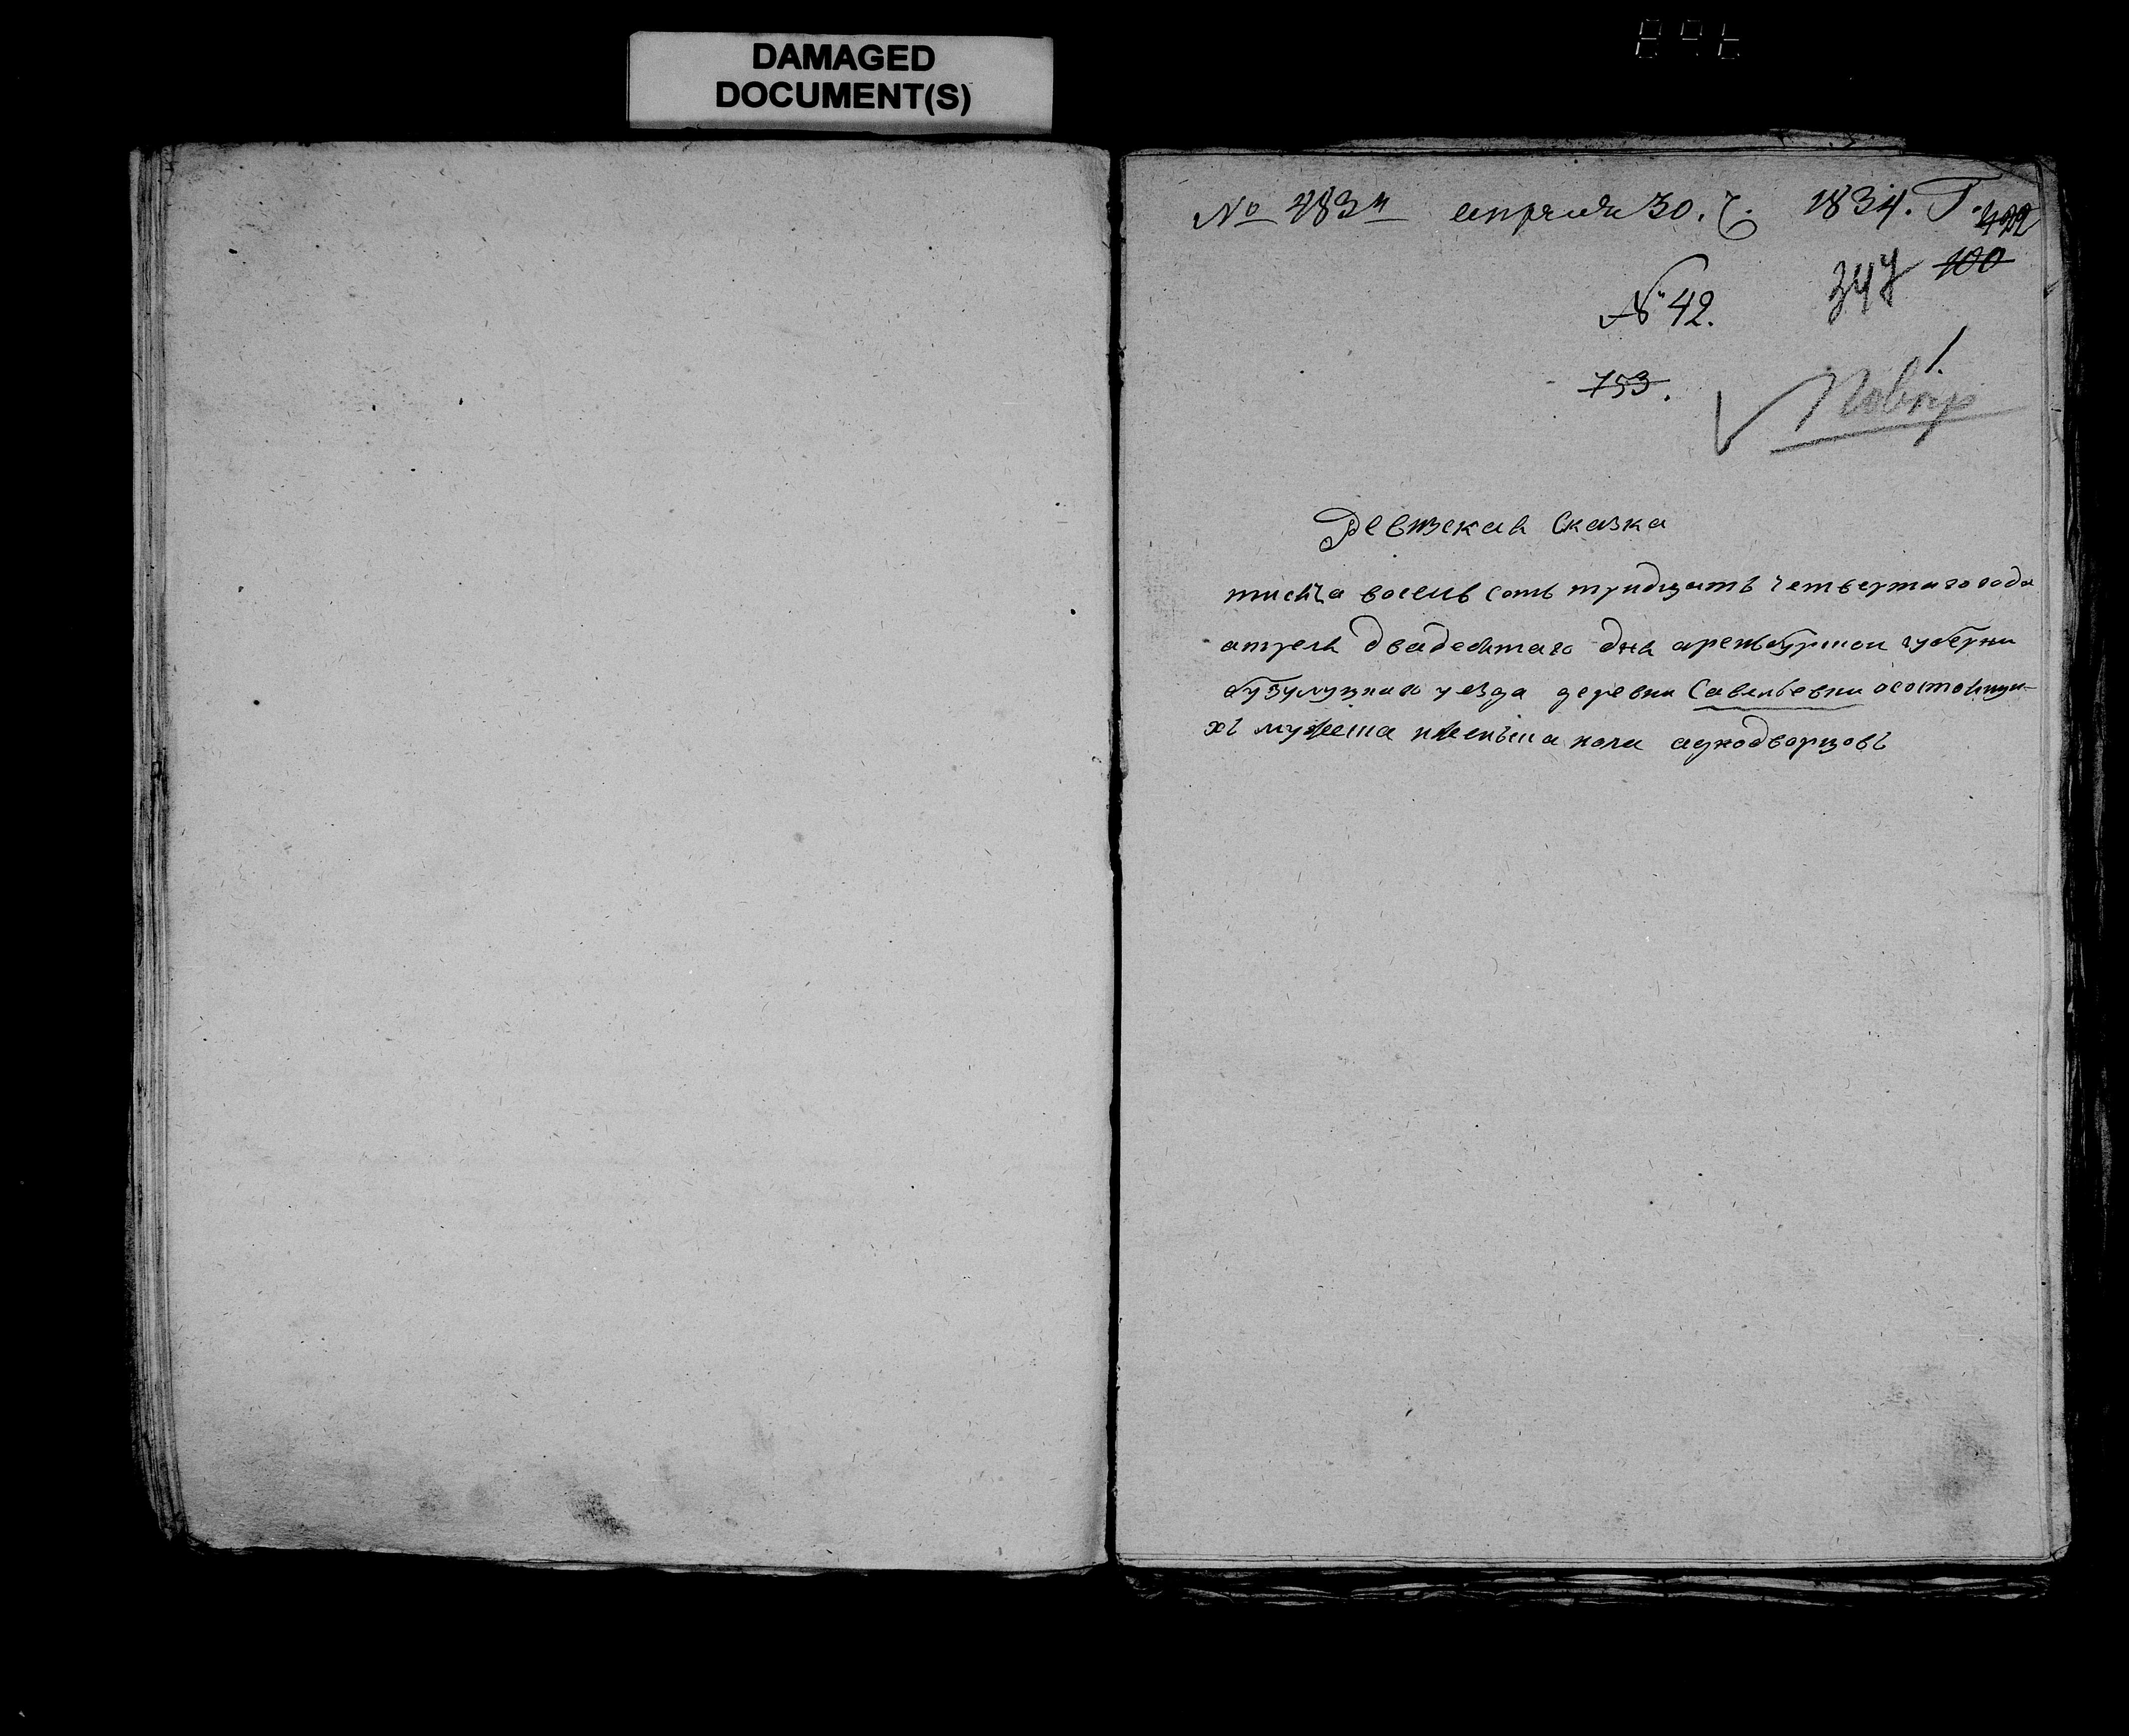 DAMAGED
DOCUMENT(S)
№ 283 апреля 30. ч. 1834. Г.
100
347
№ 42.
1.
753.
Повѣр
Ревизская Сказка
тысяча восемь сотъ тридцать четвертаго года
апреля двадесятаго дня аренбурской губерни
бузулуцкаго уезда деревни Савельевки осостоящи-
хъ мужеска иженска пола аднодворцовъ